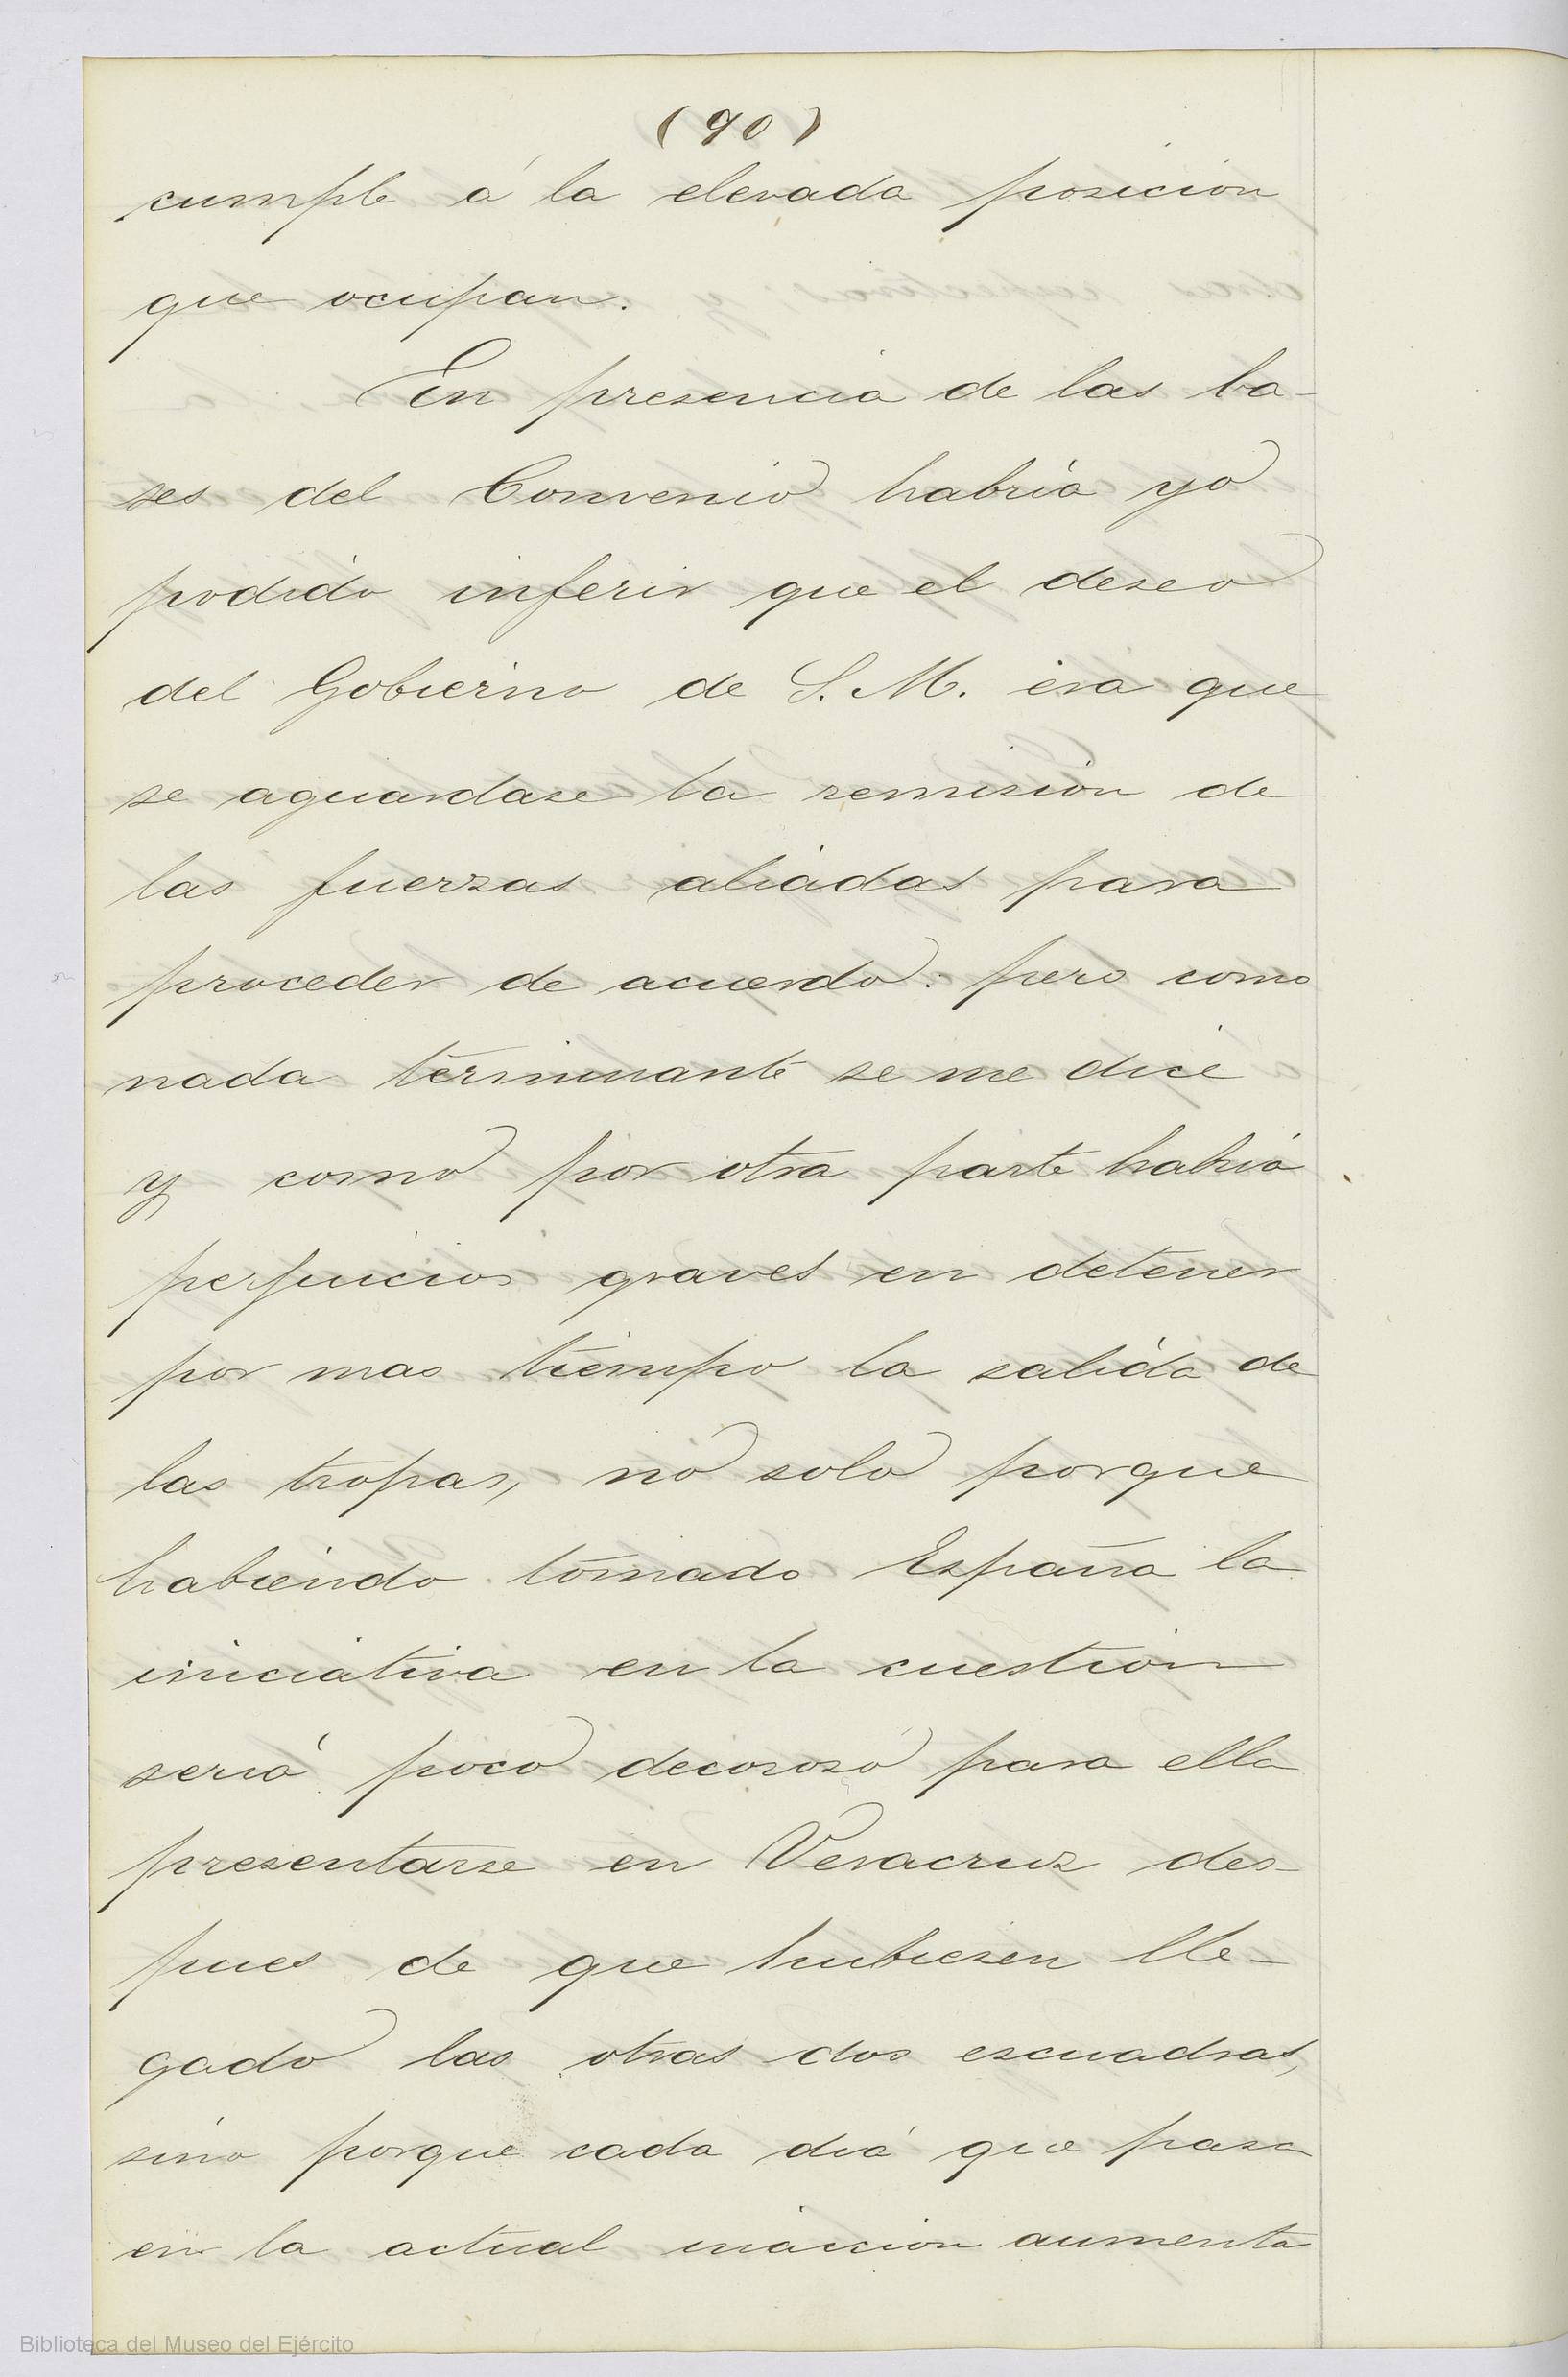 (90)
cumple á la elevada posicion
que ocupan.
En presencia de las ba-
ses del Convenio habria yo
podido inferir que el deseo
del Gobierno de S. M. era que
se aguardase la remision de
las fuerzas aliadas para
proceder de acuerdo: pero como
nada terminante se me dice
y como por otra parte habria
perjuicios graves en detener
por mas tiempo la salida de
las tropas, no solo porque
habiendo tomado España la
iniciativa en la cuestion
seria poco decoroso para ella
presentarse en Veracruz des-
pues de que hubiesen lle-
gado las otras dos escuadras,
sino porque cada dia que pasa
en la actual inaccion aumenta
Biblioteca del Museo del Ejército